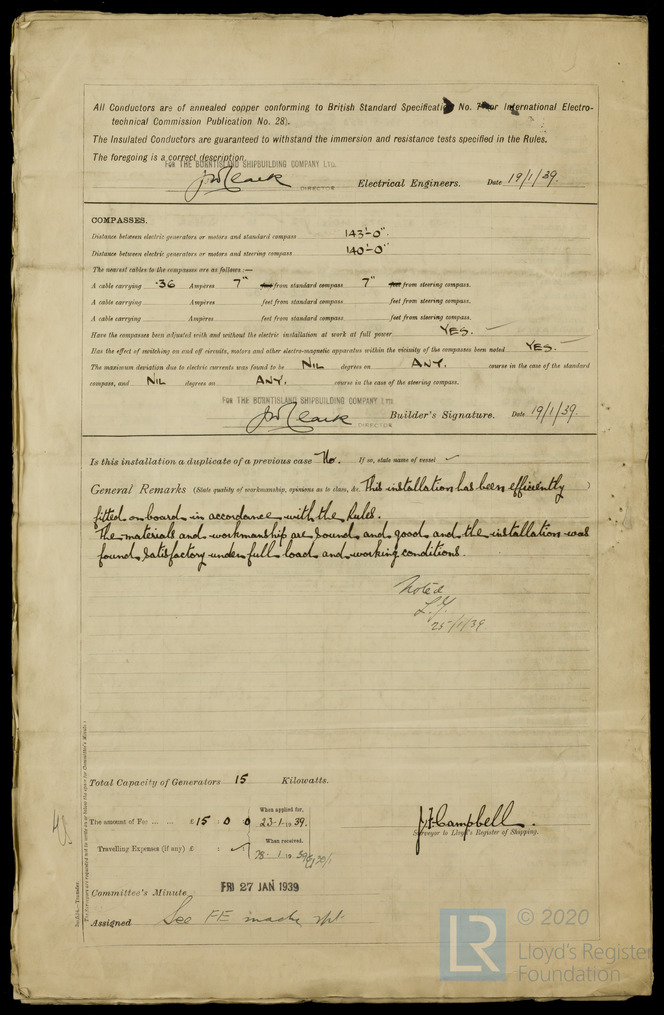 All Conductors are of annealed copper conforming to British Standard Specification No. 7 or International Electro-
technical Commission Publication No. 28).
The Insulated Conductors are guaranteed to withstand the immersion and resistance tests specified in the Rules.
The foregoing is a correct description.
FOR THE BURNTISLAND SHIPBUILDING COMPANY LTD.
DIRECTOR Electrical Engineers. Date 19/1/39.
COMPASSES.
Distance between electric generators or motors and standard compass 143'-0"
Distance between electric generators or motors and steering compass 140'-0"
The nearest cables to the compasses are as follows:—
A cable carrying .36 Ampères 7" feet from standard compass 7" feet from steering compass.
A cable carrying Ampères feet from standard compass feet from steering compass.
A cable carrying Ampères feet from standard compass feet from steering compass.
Have the compasses been adjusted with and without the electric installation at work at full power YES.
Has the effect of switching on and off circuits, motors and other electro-magnetic apparatus within the vicinity of the compasses been noted YES.
The maximum deviation due to electric currents was found to be NIL degrees on ANY. course in the case of the standard
compass, and NIL degrees on ANY. course in the case of the steering compass.
FOR THE BURNTISLAND SHIPBUILDING COMPANY LTD.
DIRECTOR Builder's Signature. Date 19/1/39.
Is this installation a duplicate of a previous case No. If so, state name of vessel ✓
General Remarks (State quality of workmanship, opinions as to class, &c. This installation has been efficiently )
fitted on board in accordance with the Rules.
The materials and workmanship are sound and good and the installation was
found satisfactory under full load and working conditions.
Noted
25/1/39
Total Capacity of Generators 15 Kilowatts.
The amount of Fee ... ... £ 15 : 0 : 0
When applied for,
23-1-1939.
Travelling Expenses (if any) £ : ✓ :
When received.
28-1-1939
J. Campbell.
Surveyor to Lloyd's Register of Shipping.
Committee's Minute FRI 27 JAN 1939
Assigned See FE machy rpt
LR © 2020
Lloyd's Register
Foundation